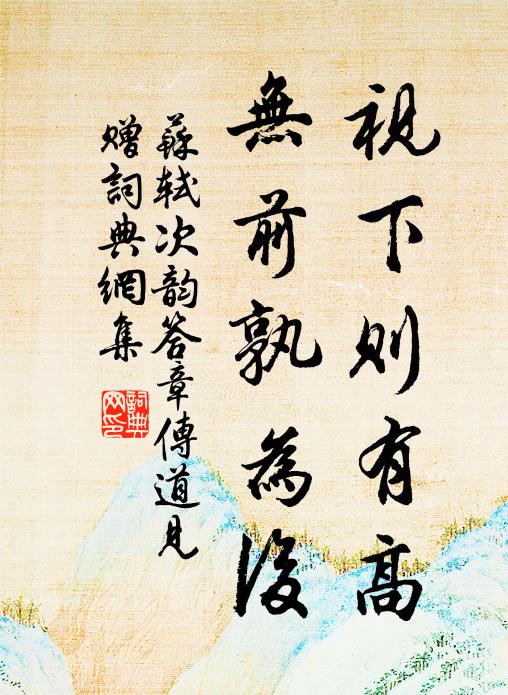 視下則有高
無前孰為後
蘇軾次韵答章傳道見
贈詞典網集
詞典
网印